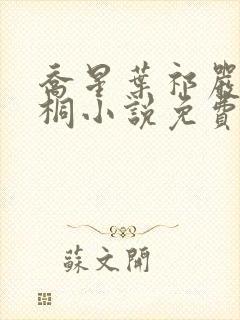 喬星葉祁嚴
桐小說免費
蘇文開